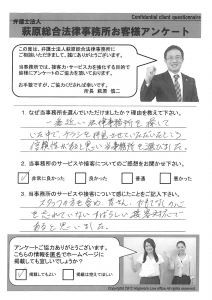 Confidential client questionnaire
弁護士法人
萩原総合法律事務所お客様アンケート
この度は、弁護士法人萩原総合法律事務所に
ご相談いただきまして、誠にありがとうございます。
当事務所では、接客・サービス力を強化する目的で
皆様にアンケートのご協力を頂いております。
お手数ですが、ご協力くださいませ。
所長 萩原 慎二
1. なぜ当事務所を選んでいただけましたか？理由を教えて下さい。
一番近い法律事務所を探して
いた中で、チラシを
信頼性があると思い当事務所を選びました。
2. 当事務所のサービスや接客についてのご感想をお聞かせ下さい。
非常に良かった
良かった
普通
悪かった
3. 当事務所のサービスや接客について感じたことをご記入下さい。
スタッフの方を含め、皆さん
を忘れていないすばらしい接客対応で
あると思いました。
アンケートご協力ありがとうございます。
こちらの情報を匿名でホームページに
掲載しても宜しいでしょうか？
掲載してもよい
掲載は控えてほしい